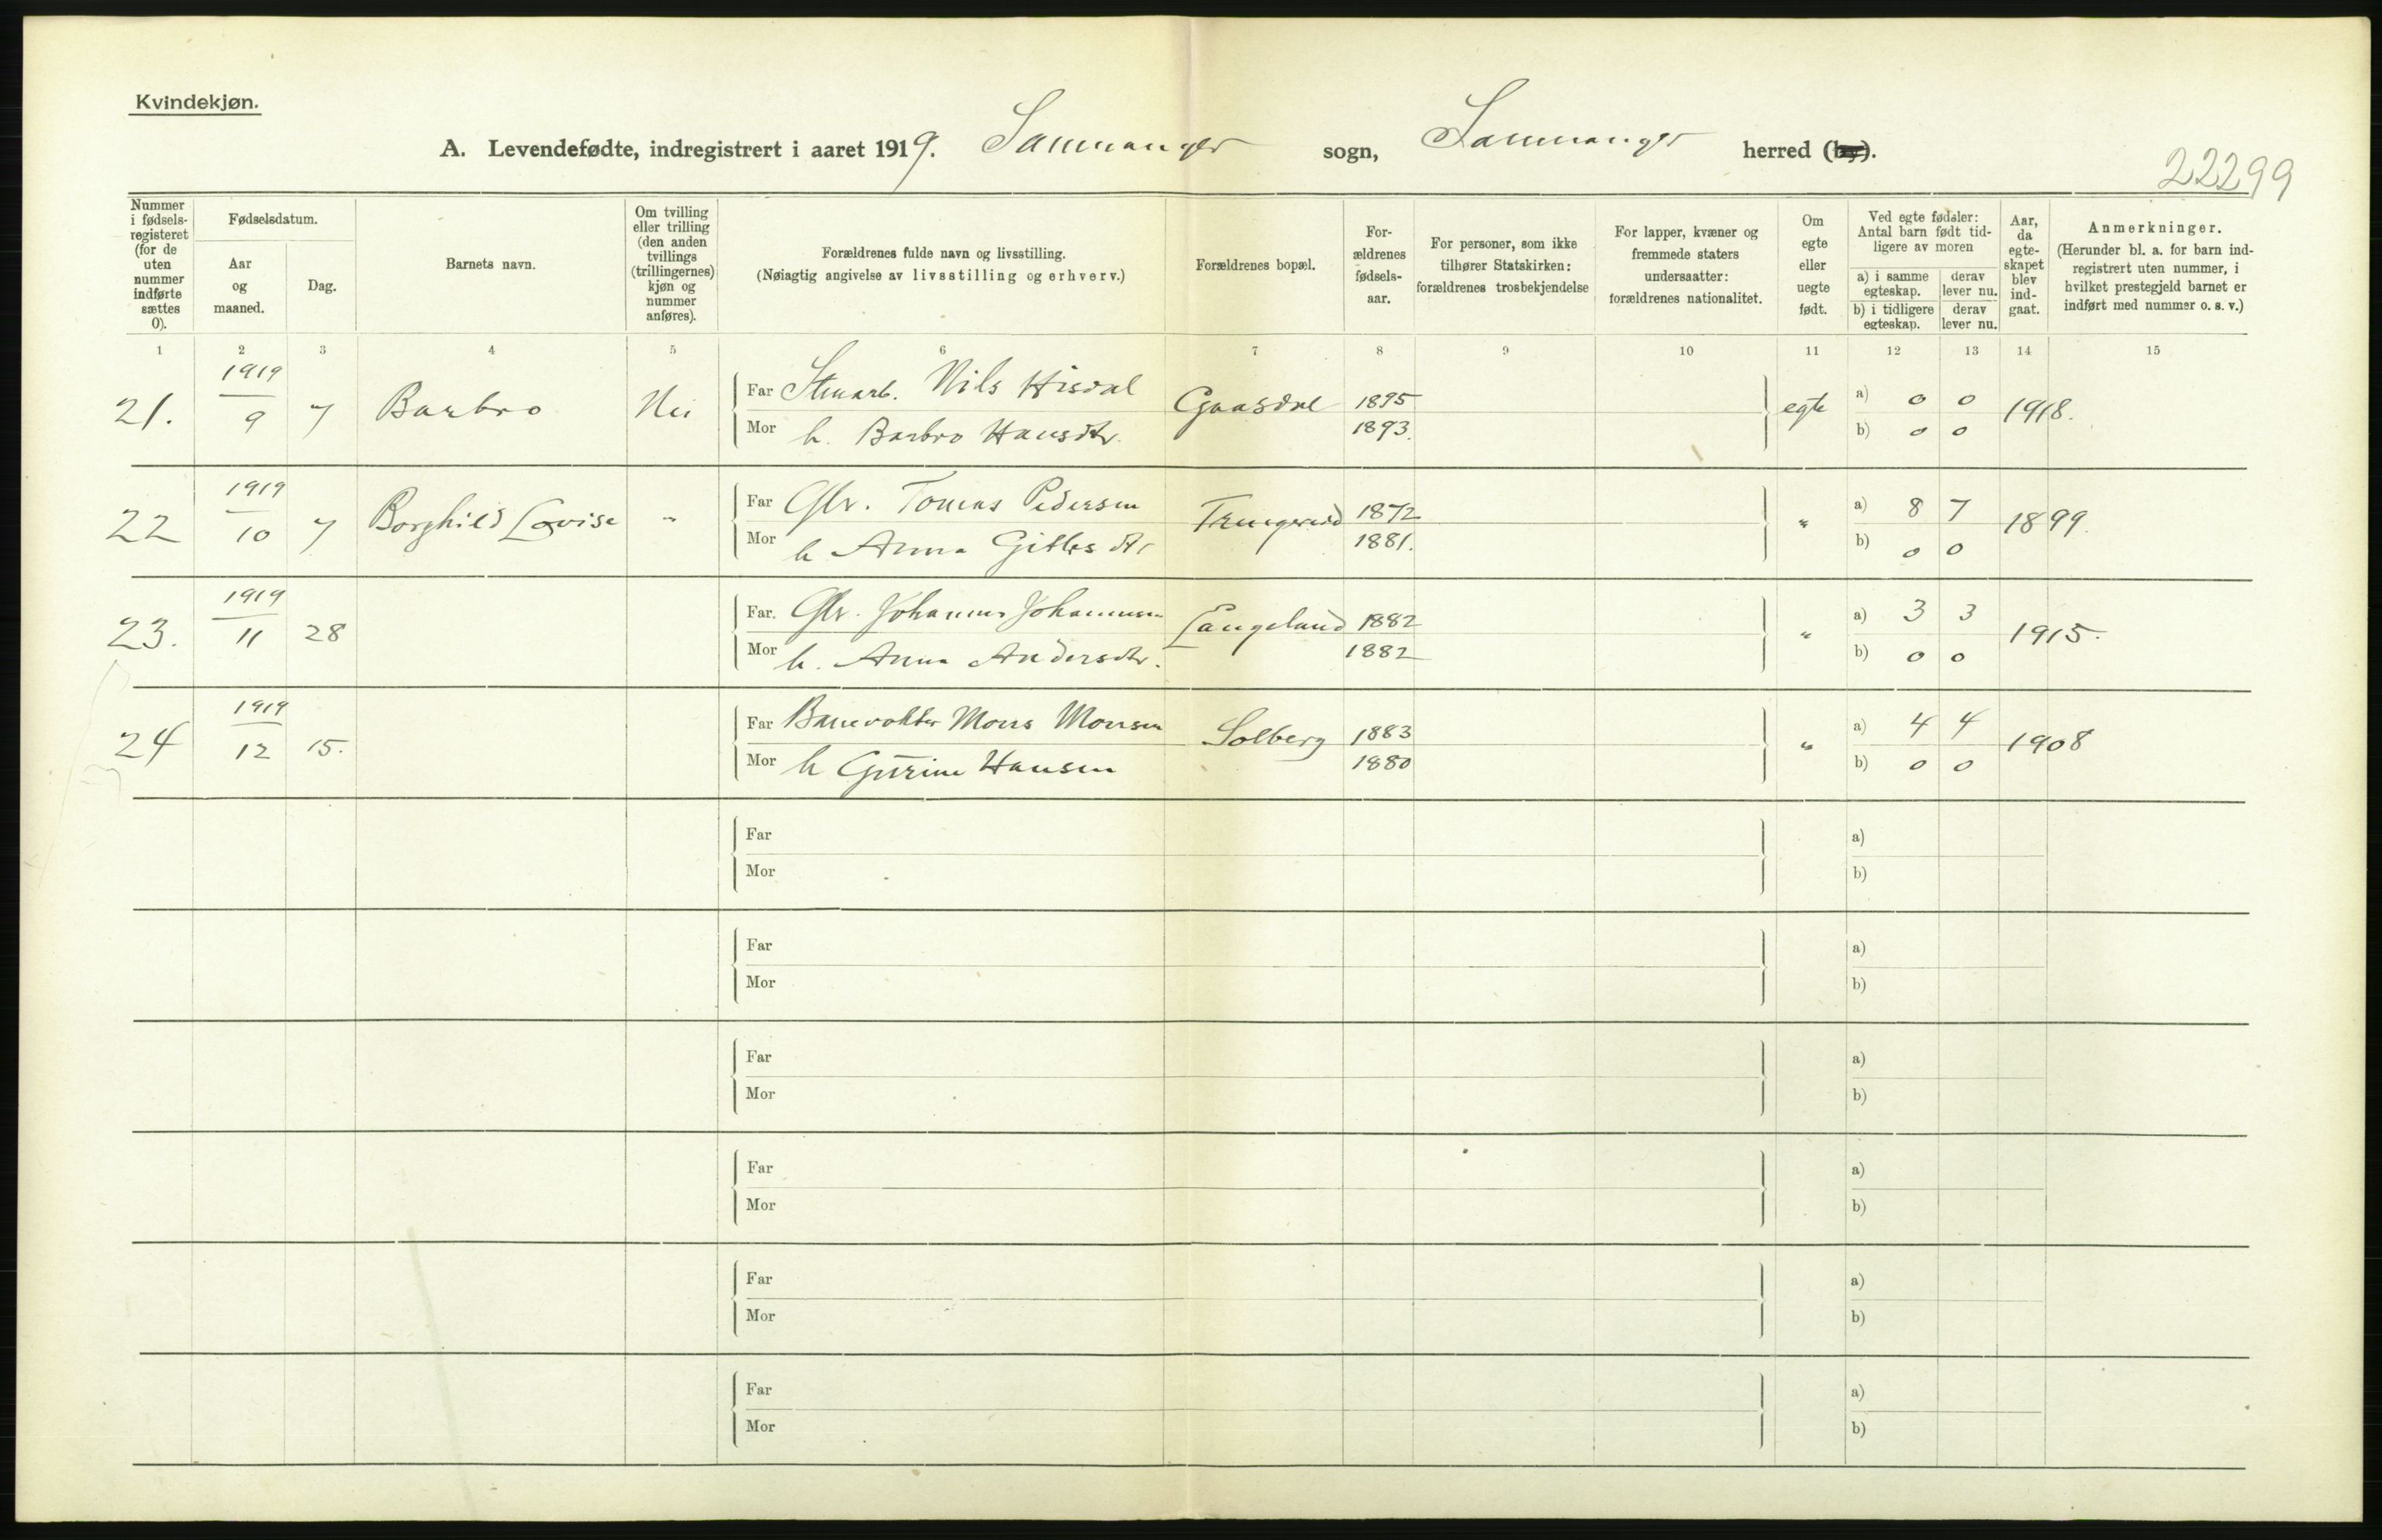 Kvindekjøn.
A. Levendefødte, indregistrert i aaret 1919. Samnanger sogn, Samnanger herred (by).
22299
Nummer i fødsels-registeret (for de uten nummer indførte sættes 0).
Fødselsdatum.
Aar og maaned.
Dag.
Barnets navn.
Om tvilling eller trilling (den anden tvillings (trillingernes) kjøn og nummer anføres).
Forældrenes fulde navn og livsstilling.
(Nøiagtig angivelse av livsstilling og erhverv.)
Forældrenes bopæl.
For-ældrenes fødsels-aar.
For personer, som ikke tilhører Statskirken: forældrenes trosbekjendelse
For lapper, kvæner og fremmede staters undersaatter: forældrenes nationalitet.
Om egte eller uegte født.
Ved egte fødsler: Antal barn født tid-ligere av moren
a) i samme egteskap. derav lever nu.
b) i tidligere egteskap. derav lever nu.
Aar, da egte-skapet blev ind-gaat.
Anmerkninger.
(Herunder bl. a. for barn ind-registrert uten nummer, i hvilket prestegjeld barnet er indført med nummer o. s. v.)
1 2 3 4 5 6 7 8 9 10 11 12 13 14 15
21. 1919 9 7 Barbro Nei Far Stenarb. Nils Hisdal Gaasdal 1895 egte a) 0 0 1918.
Mor h. Barbro Hansdtr. 1893. b) 0 0
22 1919 10 7 Borghild Lovise " Far Gbr. Tomas Pedersen 1872 " a) 8 7 1899.
Mor h Anna Gitlesdtr 1881. b) 0 0
23. 1919 11 28 Far. Gbr. Johannes Johannesen Langeland 1882 " a) 3 3 1915.
Mor h. Anna Andersdtr. 1882 b) 0 0
24 1919 12 15. Far Banevokter Mons Monsen Solberg 1883 " a) 4 4 1908
Mor h Gurine Hansen 1880 b) 0 0
Far a)
Mor b)
Far a)
Mor b)
Far a)
Mor b)
Far a)
Mor b)
Far a)
Mor b)
Far a)
Mor b)